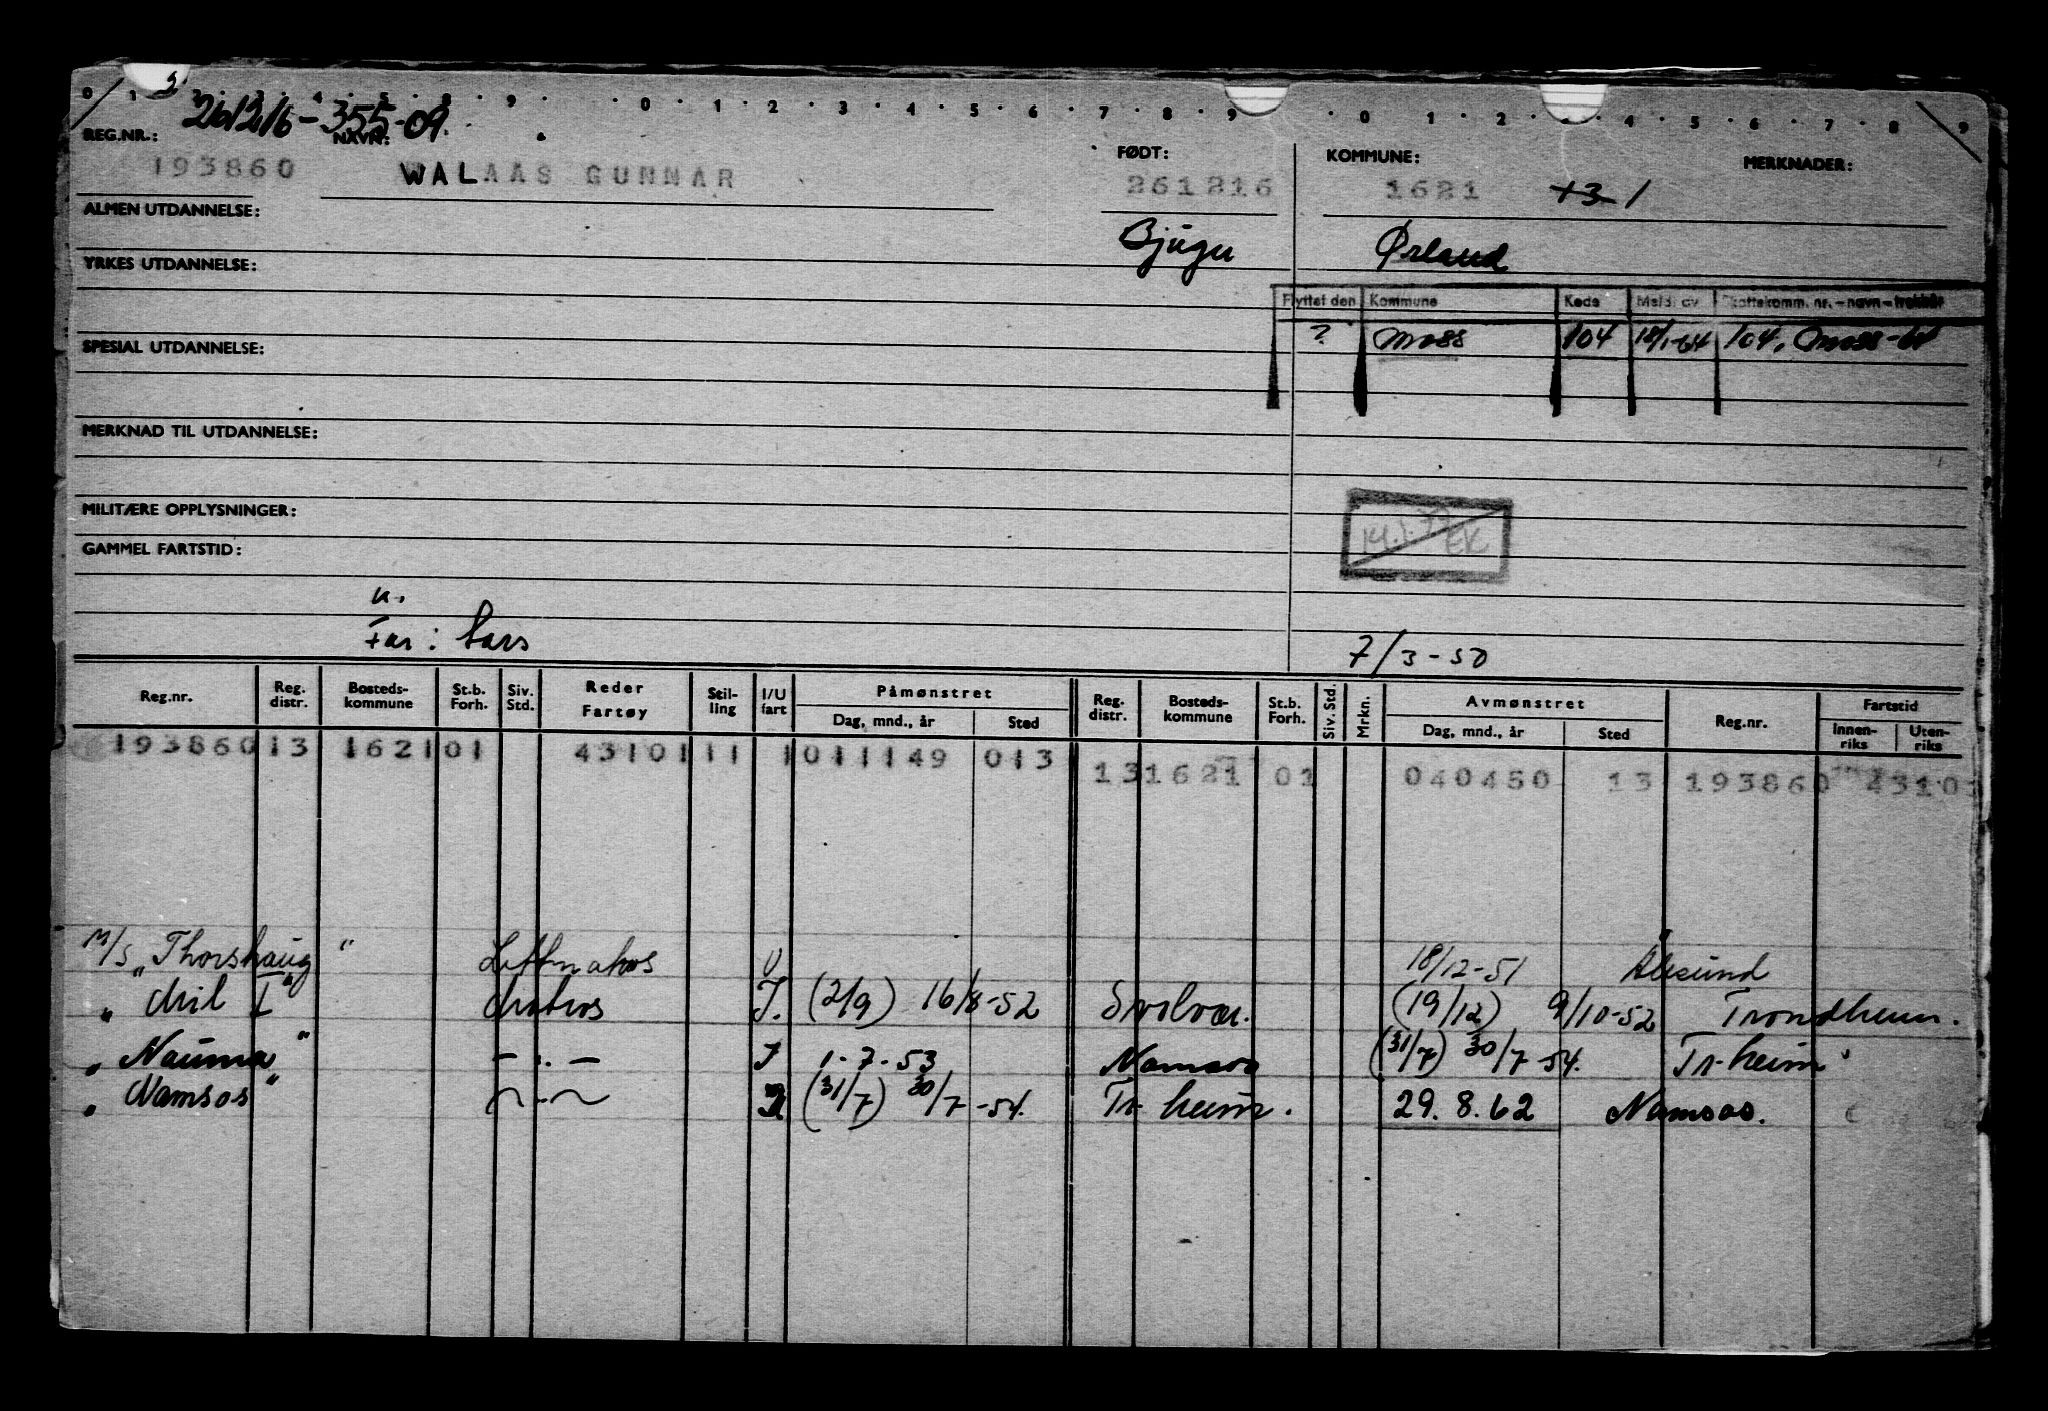 0 1 9 . 0 . 1 . 2 . 3 . 4 . 5 . 6 . 7 . 8 . 9 . 0 . 1 . 2 . 4 . 5 . 6 . 7 . 8 . 9
261216-355-09.
REG.NR.: NAVN: FØDT: KOMMUNE: MERKNADER:
193860 WALAAS GUNNAR 261216 1621
ALMEN UTDANNELSE:
Bjugn Ørland
YRKES UTDANNELSE:
Flyttet den Kommune Kode Meld. av Skattekomm. nr. – navn – trekkår
? Moss 104 18/1-64 104, Moss-64
SPESIAL UTDANNELSE:
MERKNAD TIL UTDANNELSE:
MILITÆRE OPPLYSNINGER:
EK
GAMMEL FARTSTID:
u.
Far: Lars 7/3-50
Reg.nr. Reg. distr. Bosteds-kommune St.b. Forh. Siv. Std. Reder Fartøy Stil-ling I/U fart Påmønstret Dag, mnd., år Sted Reg. distr. Bosteds-kommune St.b. Forh. Siv. Std. Mrkn. Avmønstret Dag, mnd., år Sted Reg.nr. Fartstid Innen-riks Uten-riks
193860 13 1621 01 43101 11 1 011149 013 13 1621 01 040450 13 193860 43101
M/S "Thorshaug" " Lettmatros U 18/12-51 Ålesund
" Mil I" Matros I. (2/9) 16/8-52 Svolvær. (19/12) 9/10-52 Trondheim.
" Nauma" - . - I 1-7-53 Namsos (31/7) 30/7-54. Tr-heim
" Namsos" - (31/7) 30/7-54. Tr-heim. 29.8.62 Namsos.